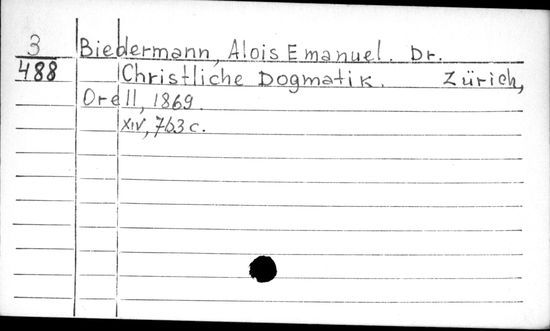 3 Biedermann, Alois Emanuel. Dr.
488 Christliche Dogmatik. Zürich,
Orell, 1869.
XIV, 763 c.